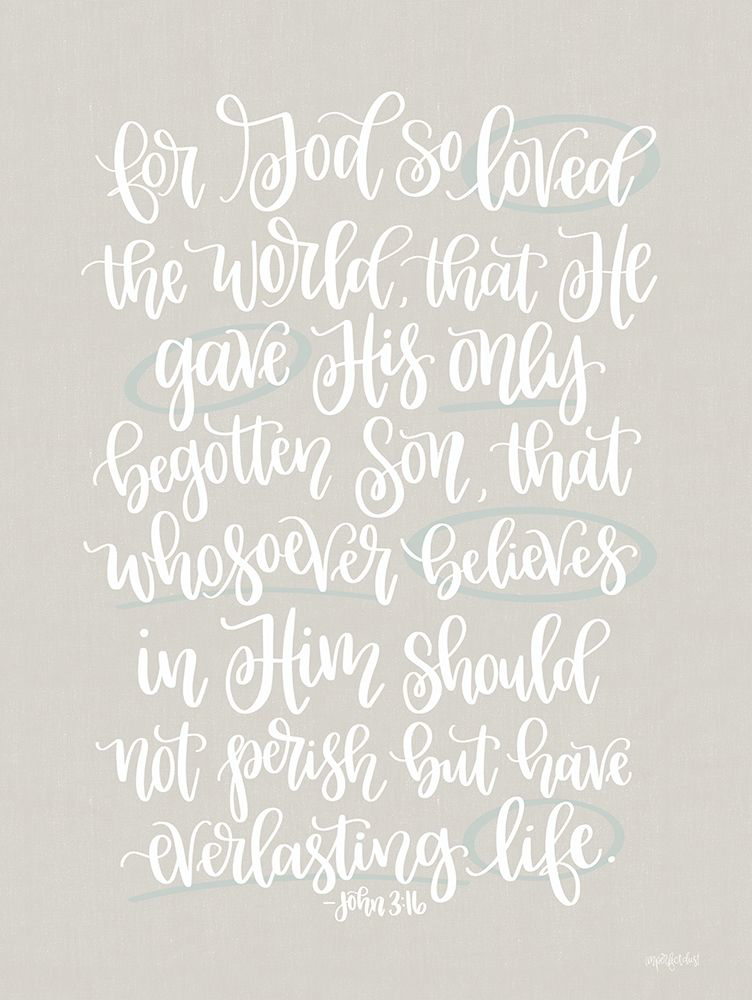 for God so loved
the world, that He
gave His only
begotten Son, that
whosoever believes
in Him should
not perish but have
everlasting life.
-John 3:16
imperfect dust